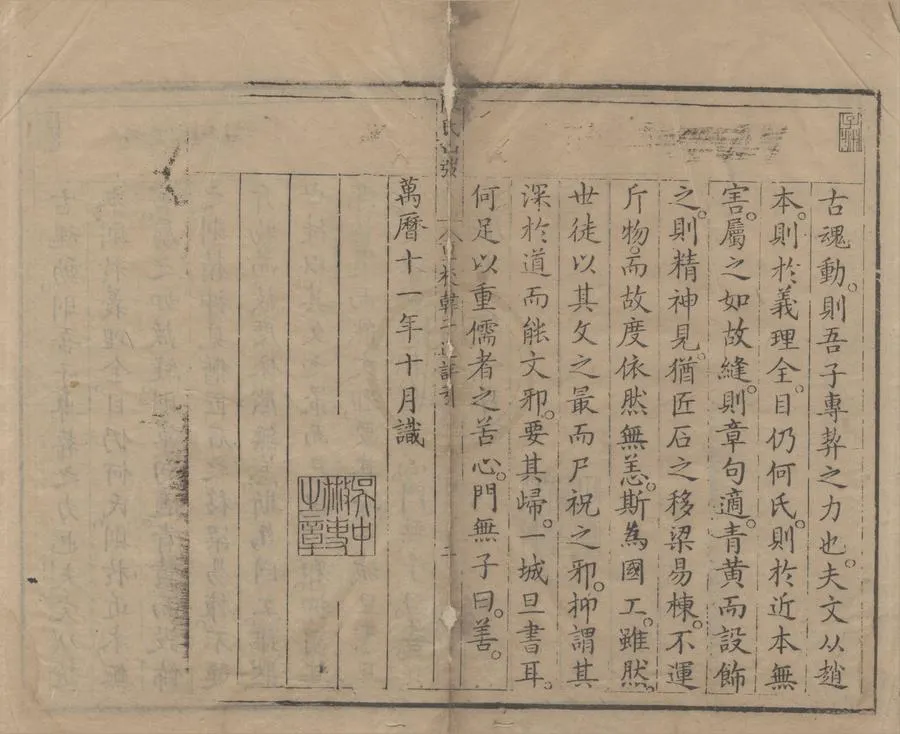 古魂動。則吾子專契之力也。夫文从趙
本。則於義理全。目仍何氏。則於近本無
害。屬之如故縫。則章句適。青黃而設飾
之。則精神見。猶匠石之移梁易棟。不運
斤物。而故度依然無恙。斯為國工。雖然。
世徒以其文之最而尸祝之邪。抑謂其
深於道而能文邪。要其歸。一城旦書耳。
何足以重儒者之苦心。門無子曰。善。
萬曆十一年十月識
校韓子迂評引
二